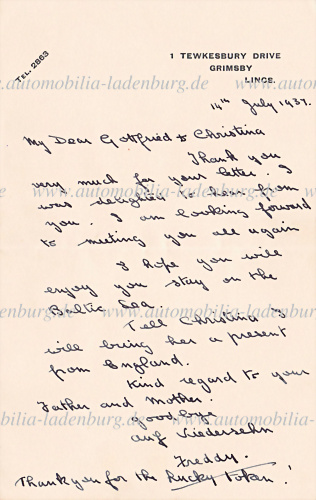 TEL. 2863
1 TEWKESBURY DRIVE
GRIMSBY
LINCS.
14th July 1937.
My Dear Gottfried & Christina
Thank you
very much for your letter. I
was delighted to hear from
you. I am looking forward
to meeting you all again
I hope you will
enjoy you stay on the
Baltic Sea.
Tell Christina I
will bring her a present
from England.
Kind regard to your
Father and Mother.
goodbye
auf Wiedersehn
Freddy.
Thank you for the Lucky token!
www.automobilia-ladenburg.de
www.automobilia-ladenburg.de
www.automobilia-ladenburg.de
www.automobilia-ladenburg.de